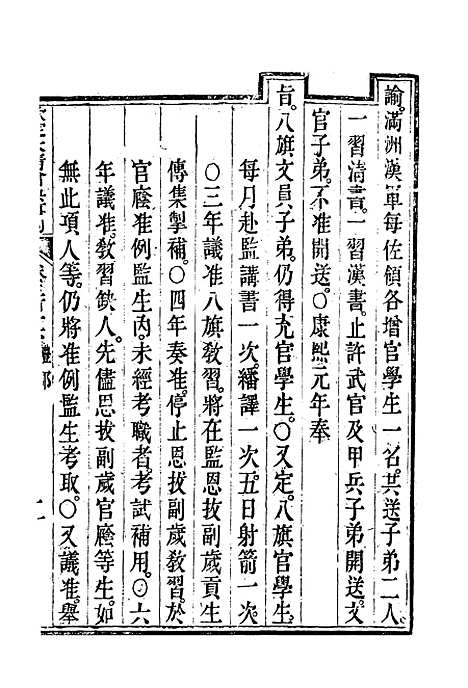 諭。滿洲漢軍每佐領各增官學生一名。共送子弟二人。
一習清書。一習漢書。止許武官及甲兵子弟開送。文
官子弟。不准開送。○康熙元年奉
旨。八旗文員子弟。仍得充官學生。○又定。八旗官學生。
每月赴監講書一次。繙譯一次。五日射箭一次。
○三年議准。八旗教習。將在監恩拔副歲貢生
傳集掣補。○四年奏准。停止恩拔副歲教習。於
官廕准例監生內。未經考職者。考試補用。○六
年議准。教習缺人。先儘恩拔副歲官廕等生。如
無此項人等。仍將准例監生考取。○又議准。舉